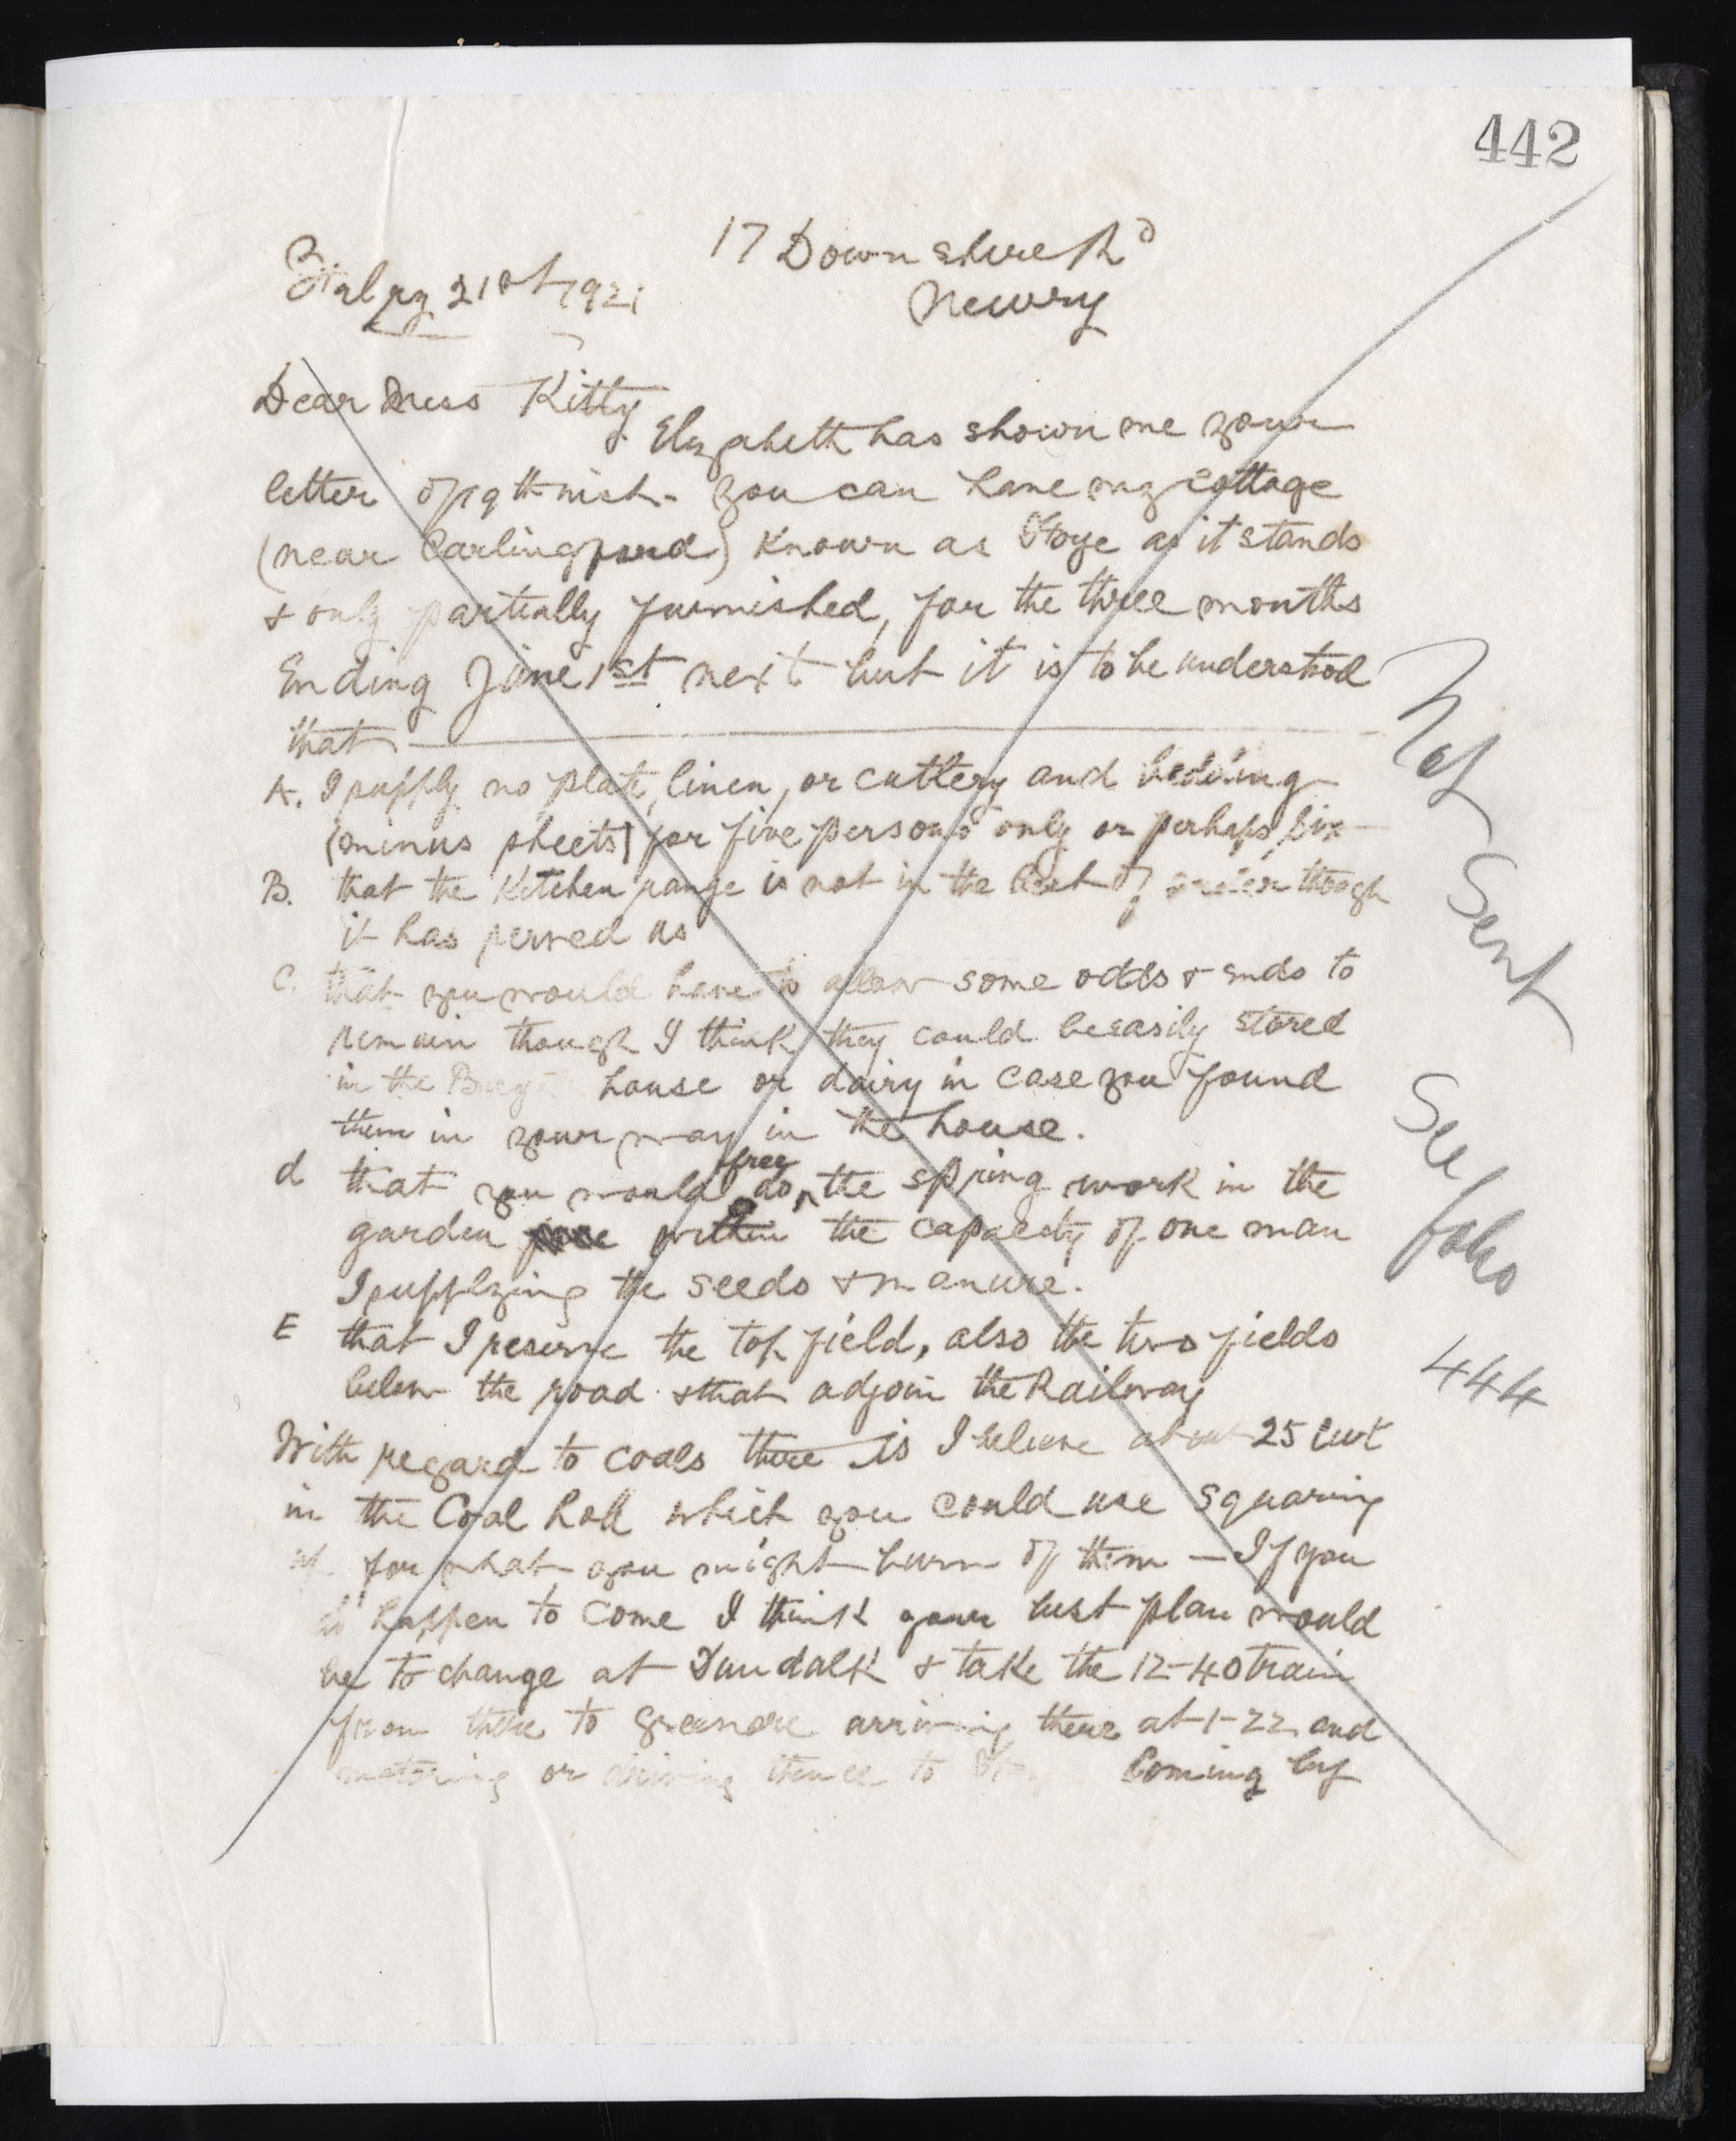 442
17 Downshire Rd
Newry
Febry 21st 1921
Dear Miss Kitty
Elizabeth has shown me your
letter of 19th inst. You can have my cottage
(near Carlingford) known as Ffoye as it stands
& only partially furnished, for the three months
Ending June 1st next but it is to be understood
that
A. I supply no plate, linen, or cutlery and bedding
(minus sheets) for five persons only or perhaps six
B. that the Kitchen range is not in the best of order though
it has served us
C. that you would have to allow some odds & ends to
remain though I think they could be easily stored
in the house or dairy in case you found
them in your way in the house.
d that you would do free the spring work in the
garden within the capacity of one man
I supplying the seeds & manure.
E that I reserve the top field, also the two fields
below the road & that adjoin the Railway
With regard to coals there is I believe about 25 cwt
in the Coal hole which you could use squaring
up for what you might burn of them — If you
do happen to come I think your best plan would
be to change at Dundalk & take the 12-40 train
from there to Greenore arriving there at 1-22 and
motoring or driving thence to Coming by
Not Sent
See
folio
444